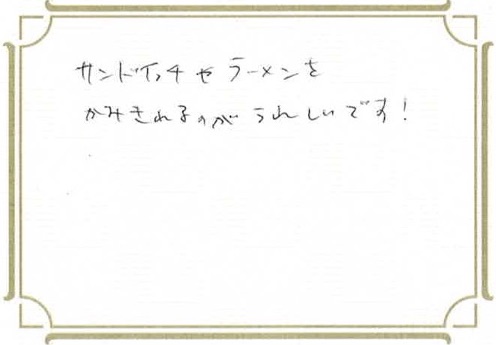 サンドイッチやラーメンを
かみきれるのがうれしいです!